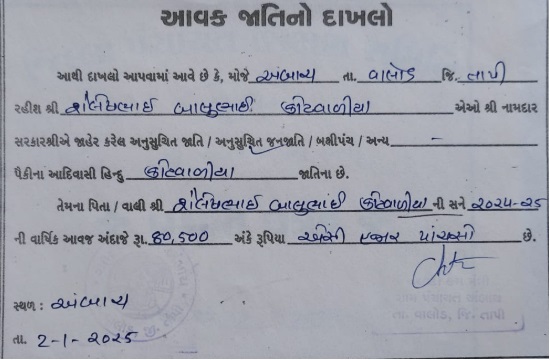 આવક જાતિનો દાખલો
આથી દાખલો આપવામાં આવે છે કે, મોજે અંબાચ તા. વાલોડ જિ. તાપી
રહીશ શ્રી શૈલેષભાઈ બાલુભાઈ કોટવાળીયા એઓ શ્રી નામદાર
સરકારશ્રીએ જાહેર કરેલ અનુસુચિત જાતિ / અનુસુચિત જનજાતિ / બક્ષીપંચ / અન્ય -
પૈકીના આદિવાસી હિન્દુ કોટવાળીયા જાતિના છે.
તેમના પિતા / વાલી શ્રી શૈલેષભાઈ બાલુભાઈ કોટવાળીયા ની સને ૨૦૨૪-૨૫
ની વાર્ષિક આવજ અંદાજે રૂા. ૮૦,૫૦૦ અંકે રૂપિયા એંસી હજાર પાંચસો છે.
સ્થળ : અંબાચ
તા. વાલોડ, જિ. તાપી
તા. 2-1-૨૦૨૫